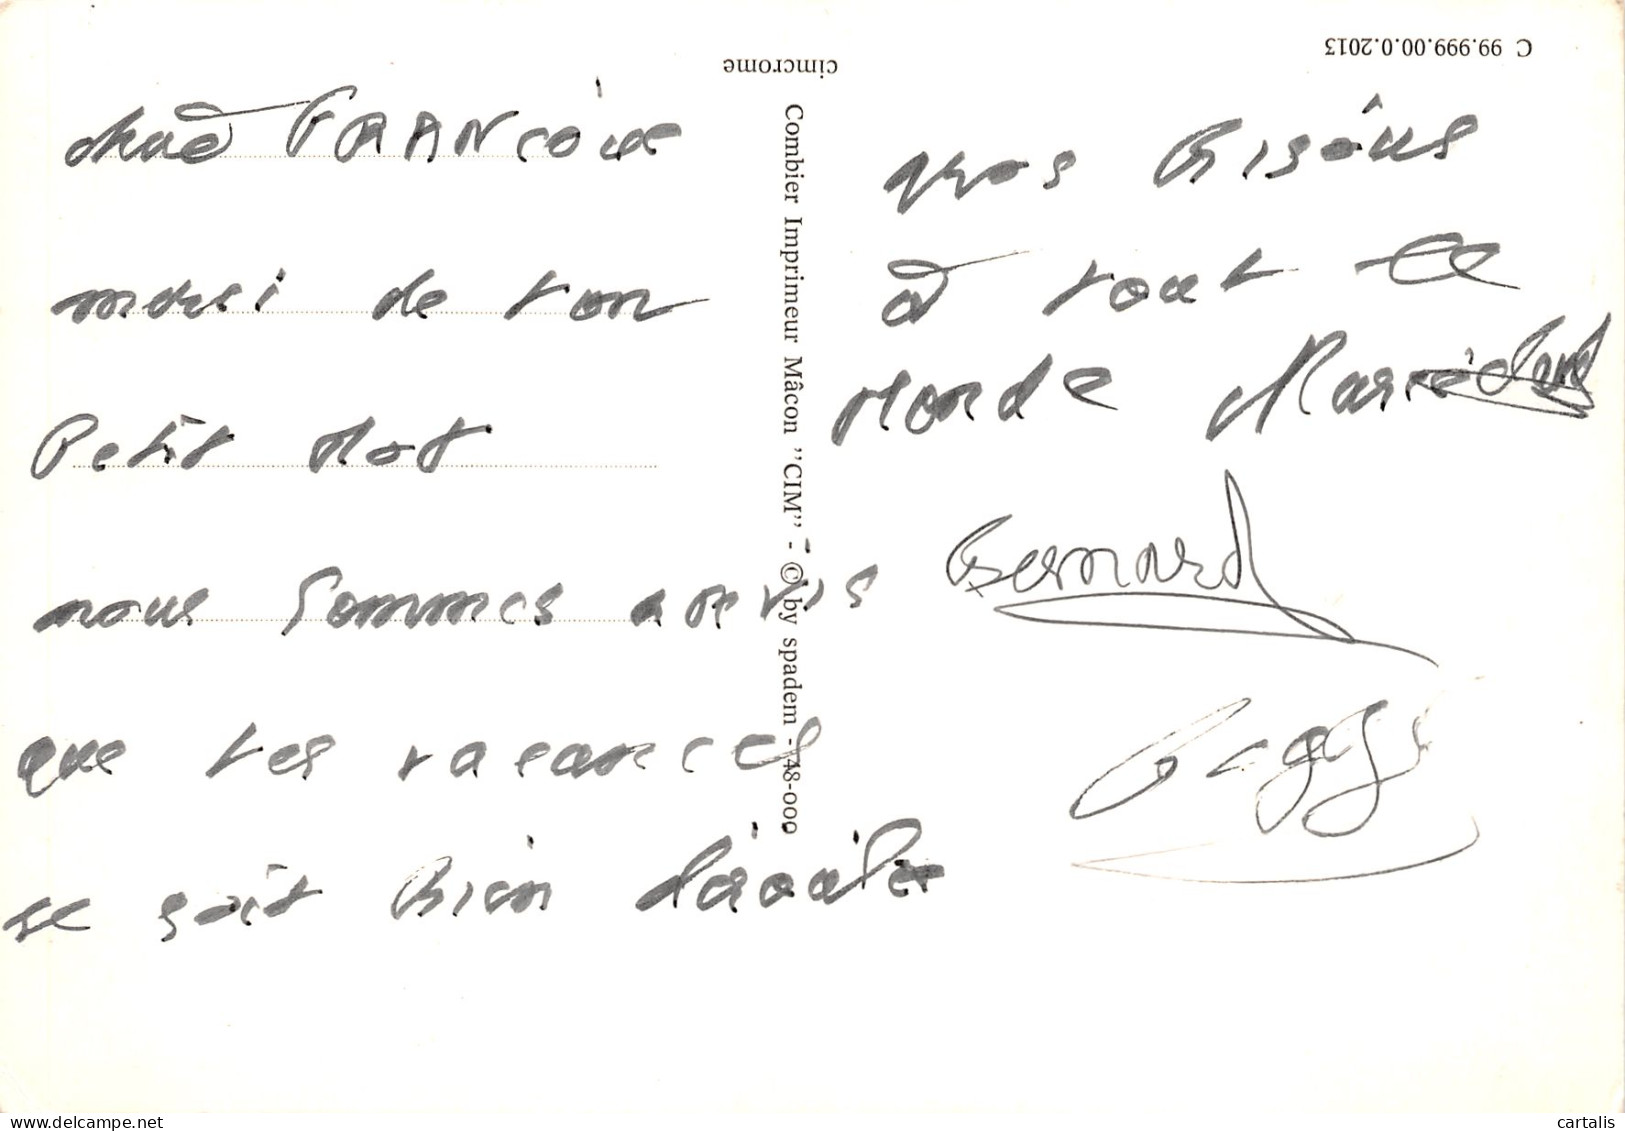 C 99.999.00.0.2013
cimcrome
Combier Imprimeur Mâcon "CIM" - © by spadem - 48-000
FRANCOISE
merci de ton
Petit Mot
nous sommes
que tes vacances
se soit bien
gros Bisous
à tout le
Monde
Bernard
Peggy
cartalis
delcampe.net